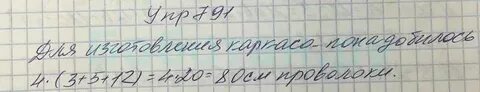 Упр 791
Для изготовления каркаса понадобилось
4·(3+5+12)=4·20=80см проволоки.